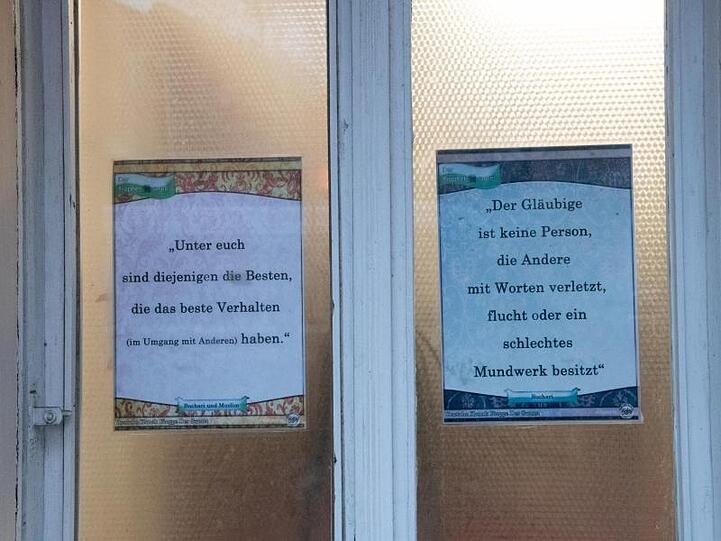 „Unter euch
sind diejenigen die Besten,
die das beste Verhalten
(im Umgang mit Anderen) haben.“
Buchari und Muslim
„Der Gläubige
ist keine Person,
die Andere
mit Worten verletzt,
flucht oder ein
schlechtes
Mundwerk besitzt“
Buchari